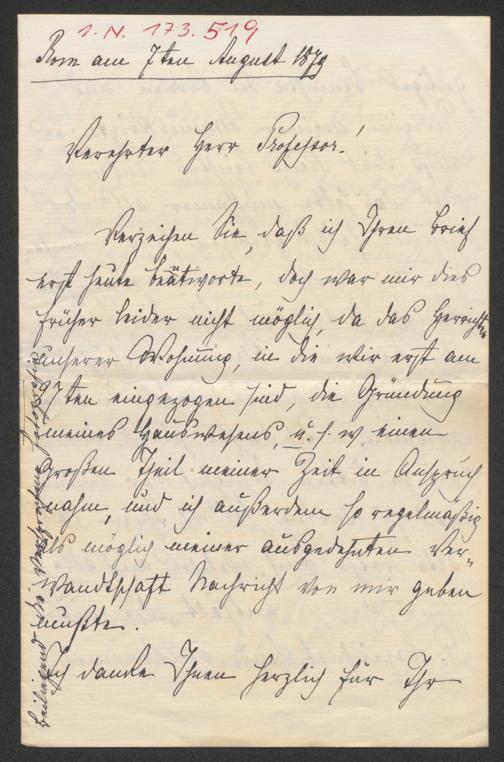 I. N. 173.519
Rom am 7ten August 1879
Verehrter Herr Professor!
Verzeihen Sie, daß ich Ihren Brief
erst heute beantworte, doch war mir dies
früher leider nicht möglich, da das Herrichten
unserer Wohnung, in die wir erst am
ten eingezogen sind, die Gründung
meines Hauswesens, u. s. w einen
großen Theil meiner Zeit in Anspruch
nahm, und ich außerdem so regelmäßig
als möglich meiner ausgedehnten Ver-
wandtschaft Nachricht von mir geben
mußte.
Ich danke Ihnen herzlich für Ihr
Beiliegend die versprochene Fotografie